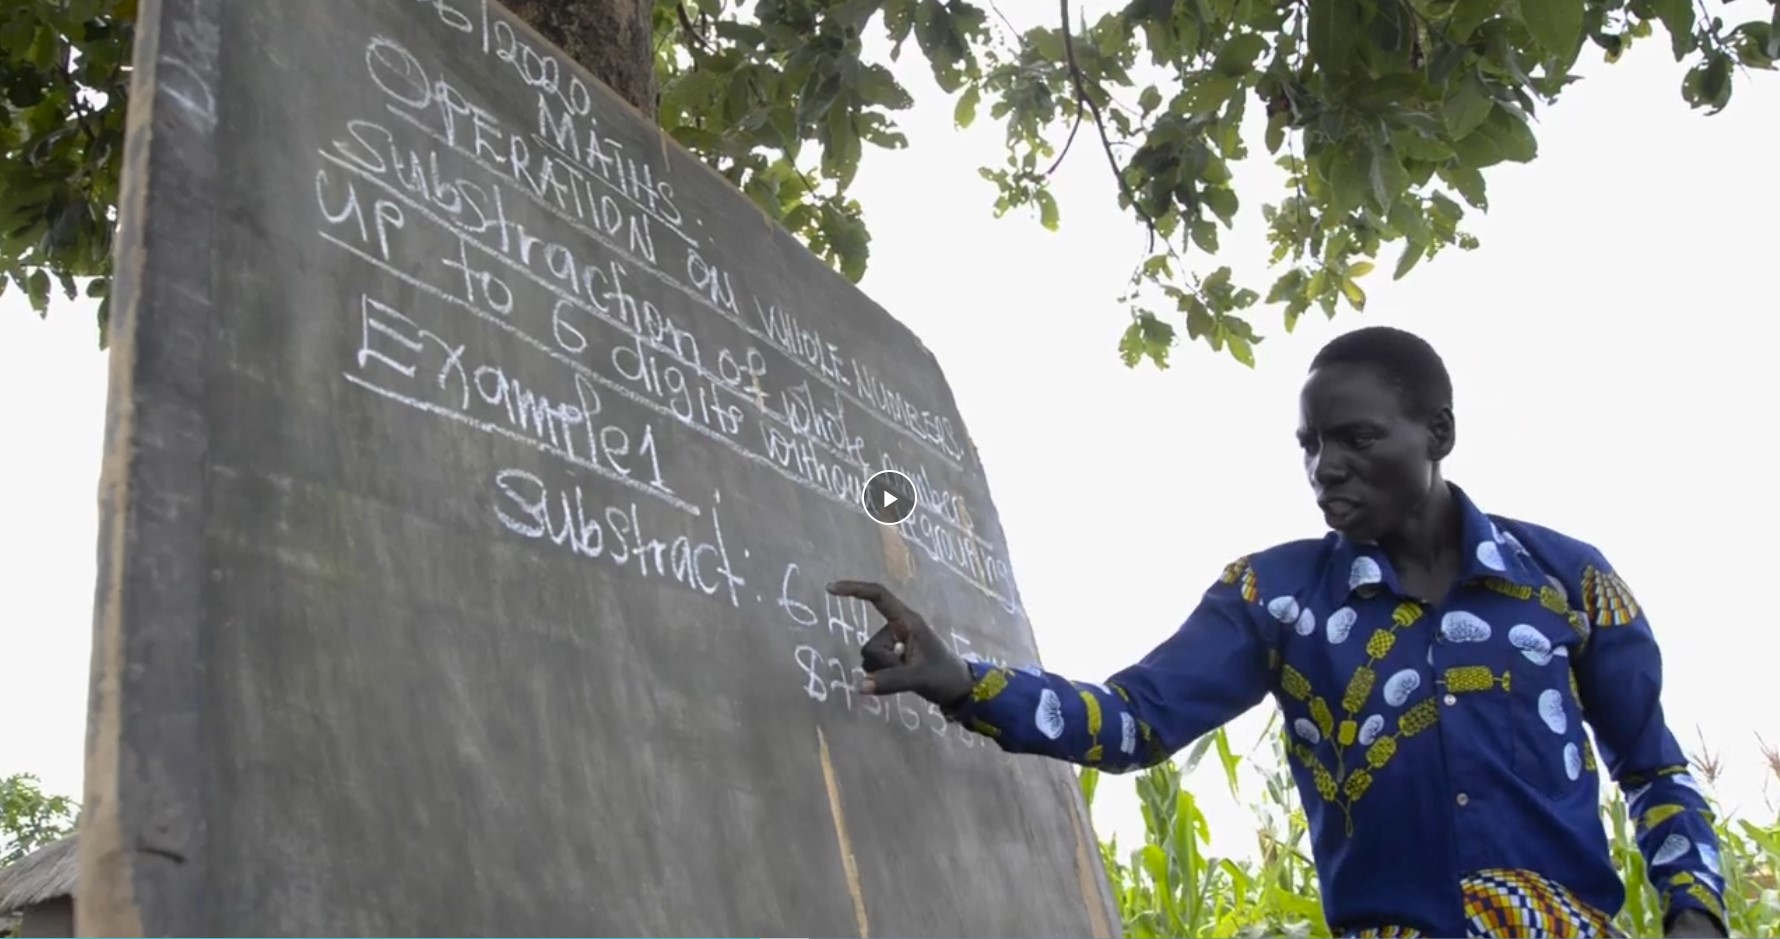 6/2020.
MATHS.
OPERATION ON WHOLE NUMBERS.
Substraction of whole numbers
up to 6 digits without regrouping
Example 1
Substract: